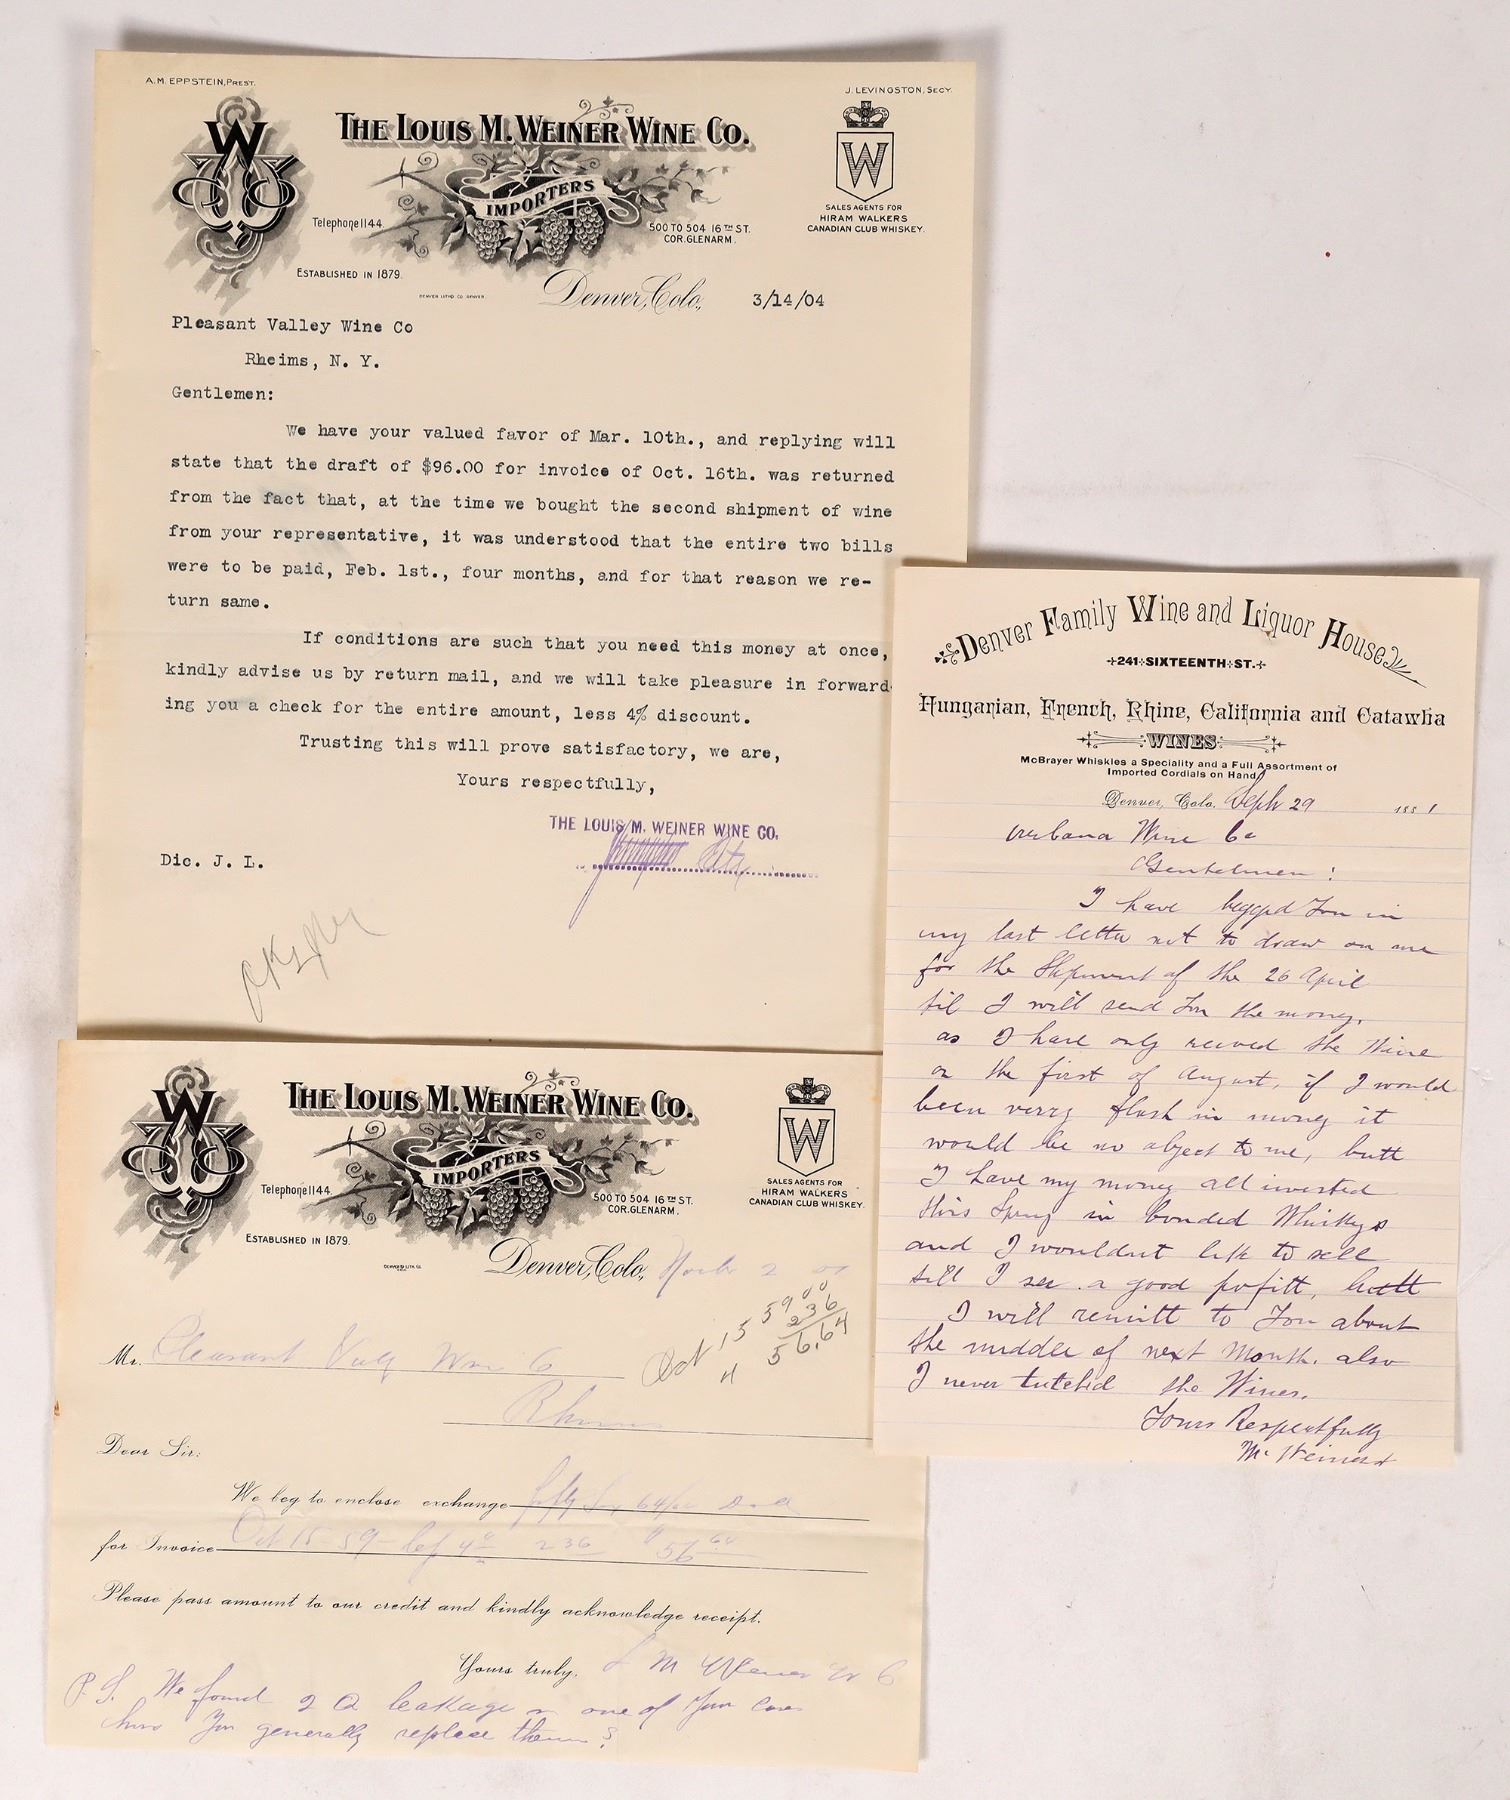 A.M. EPPSTEIN, PREST.
J. LEVINGSTON, SECY.
THE LOUIS M. WEINER WINE CO.
W
W
IMPORTERS
Telephone 1144.
500 TO 504 16TH ST.
COR. GLENARM.
SALES AGENTS FOR
HIRAM WALKERS
CANADIAN CLUB WHISKEY.
ESTABLISHED IN 1879.
DENVER LITHO CO DENVER
Denver, Colo., 3/14/04
Pleasant Valley Wine Co
Rheims, N. Y.
Gentlemen:
We have your valued favor of Mar. 10th., and replying will
state that the draft of $96.00 for invoice of Oct. 16th. was returned
from the fact that, at the time we bought the second shipment of wine
from your representative, it was understood that the entire two bills
were to be paid, Feb. 1st., four months, and for that reason we re-
turn same.
If conditions are such that you need this money at once,
kindly advise us by return mail, and we will take pleasure in forward
ing you a check for the entire amount, less 4% discount.
Trusting this will prove satisfactory, we are,
Yours respectfully,
THE LOUIS M. WEINER WINE CO.
Dic. J. L.
THE LOUIS M. WEINER WINE CO.
W
W
IMPORTERS
Telephone 1144.
500 TO 504 16TH ST.
COR. GLENARM.
SALES AGENTS FOR
HIRAM WALKERS
CANADIAN CLUB WHISKEY.
ESTABLISHED IN 1879.
Denver, Colo., 2
Oct 15 5900
4 236
56.64
Mr. Pleasant Vally Wine Co
Rheims
Dear Sir:
We beg to enclose exchange fifty Six 64/100
for Invoice Oct 15 - 59 - 4 236 $ 56 64
Please pass amount to our credit and kindly acknowledge receipt.
Yours truly, L M Weiner W C
P. S. We found 2 Q leakage in one of your cases
You generally replace them?
Denver Family Wine and Liquor House
241 SIXTEENTH ST.
Hungarian, French, Rhine, California and Catawba
WINES
McBrayer Whiskies a Speciality and a Full Assortment of
Imported Cordials on Hand
Denver, Colo. Seph 29 1881
Urbana Wine Co
Gentelmen:
I have begged You in
my last letter not to draw on me
for the Shipment of the 26 April
til I will send You the money,
as I have only received the Wine
on the first of August, if I would
been verry flush in money it
would be no abject to me, butt
I have my money all invested
this Spring in bonded Whiskys
and I wouldnt like to sell
till I see a good profitt, butt
I will remitt to You about
the middle of next Month. also
I never tutched the Wines.
Yours Respectfully